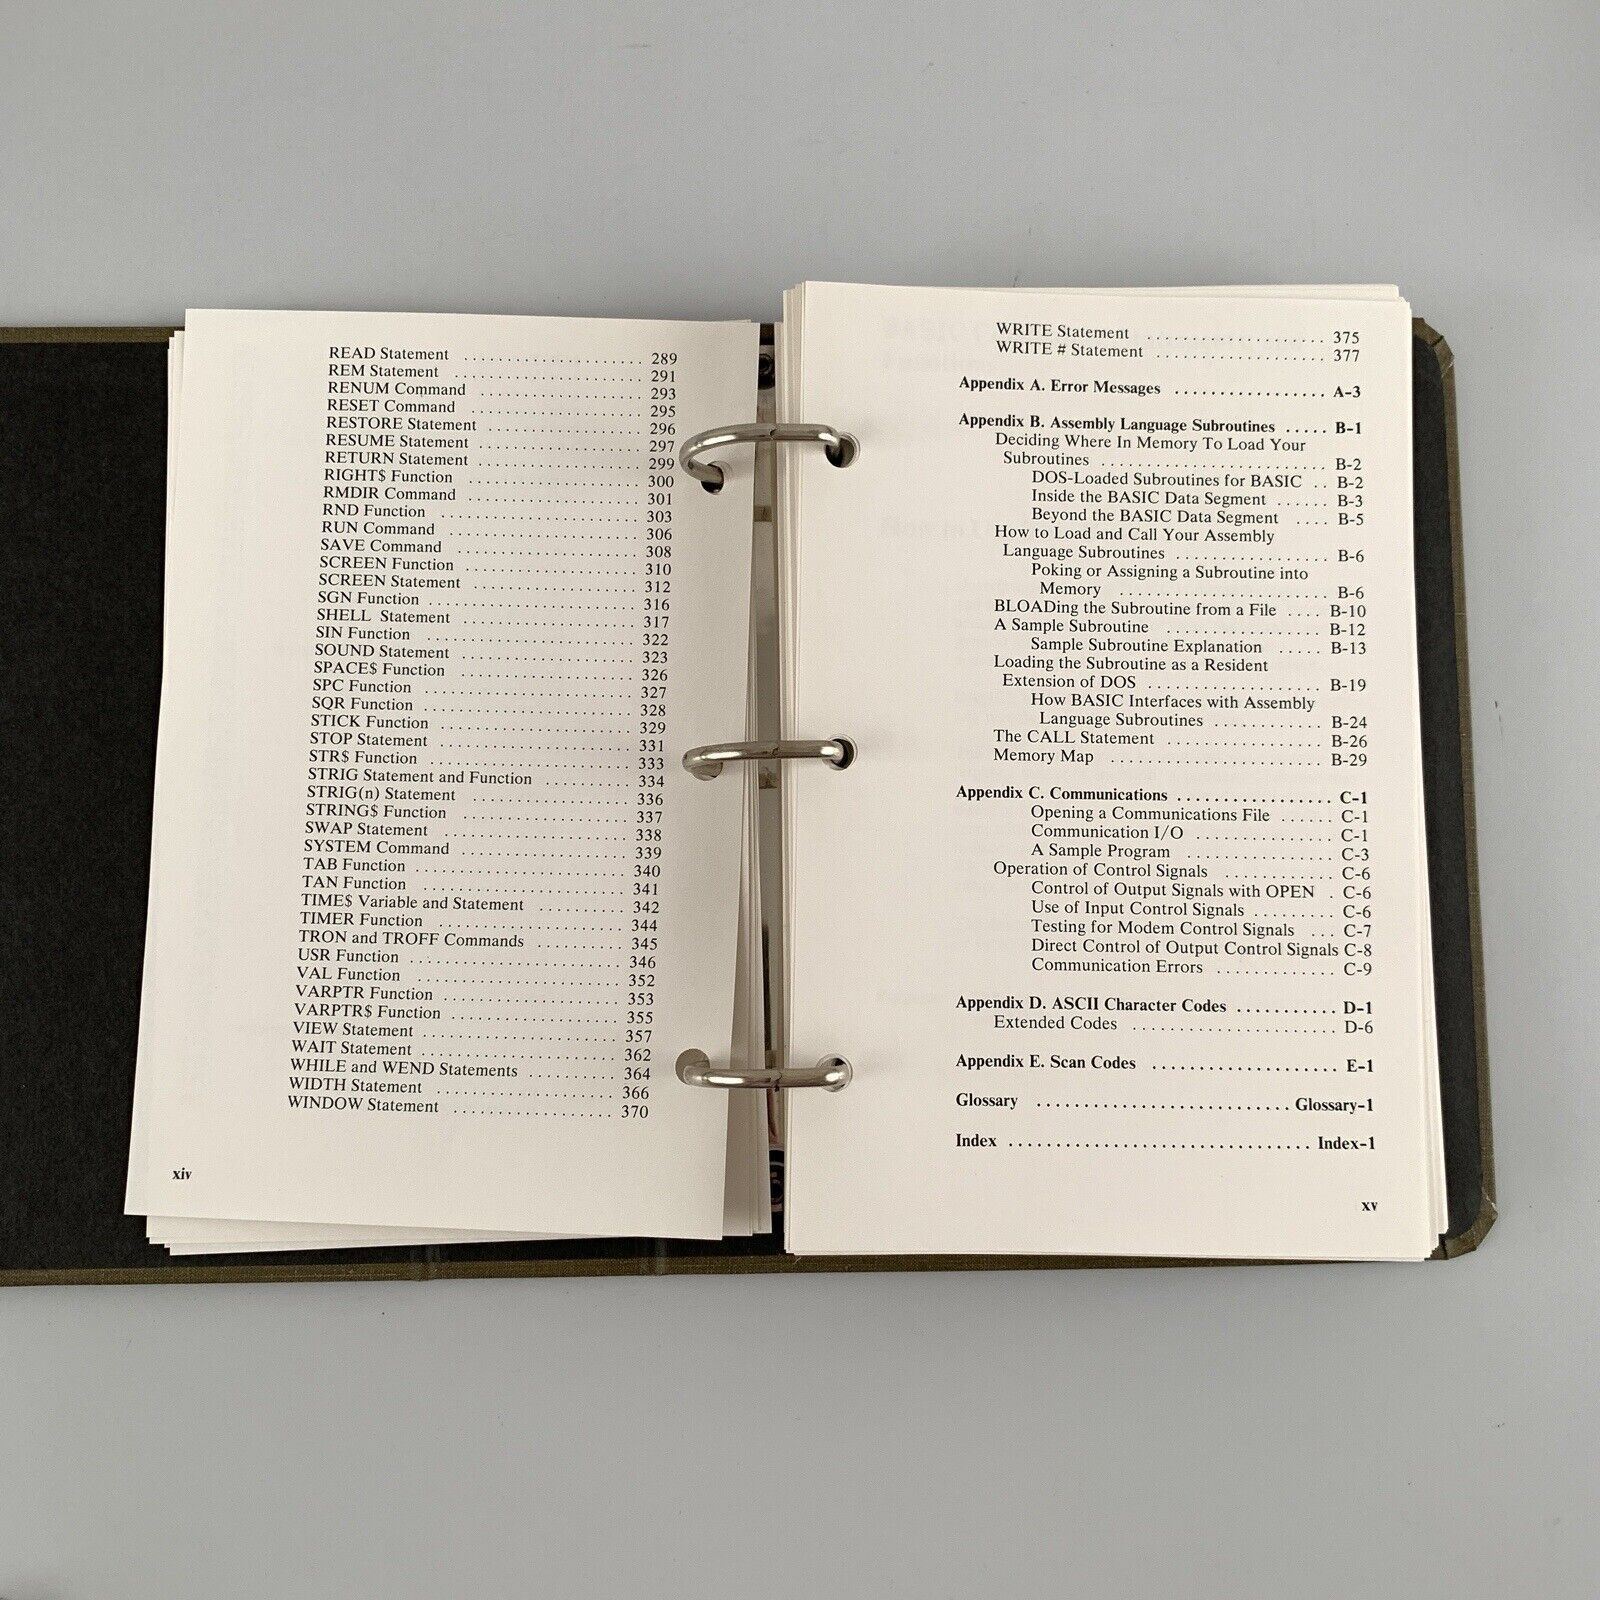 READ Statement ................... 289
REM Statement .................... 291
RENUM Command .................. 293
RESET Command .................. 295
RESTORE Statement ................ 296
RESUME Statement ................. 297
RETURN Statement ................. 299
RIGHT$ Function .................. 300
RMDIR Command .................. 301
RND Function ..................... 303
RUN Command .................... 306
SAVE Command ................... 308
SCREEN Function .................. 310
SCREEN Statement ................. 312
SGN Function ..................... 316
SHELL Statement .................. 317
SIN Function ...................... 322
SOUND Statement ................. 323
SPACE$ Function .................. 326
SPC Function ...................... 327
SQR Function ..................... 328
STICK Function .................... 329
STOP Statement .................... 331
STR$ Function ..................... 333
STRIG Statement and Function ......... 334
STRIG(n) Statement ................. 336
STRING$ Function .................. 337
SWAP Statement .................... 338
SYSTEM Command .................. 339
TAB Function ...................... 340
TAN Function ...................... 341
TIME$ Variable and Statement ......... 342
TIMER Function .................... 344
TRON and TROFF Commands ......... 345
USR Function ...................... 346
VAL Function ...................... 352
VARPTR Function .................. 353
VARPTR$ Function ................. 355
VIEW Statement .................... 357
WAIT Statement .................... 362
WHILE and WEND Statements ......... 364
WIDTH Statement .................. 366
WINDOW Statement ................ 370
xiv
WRITE Statement ................... 375
WRITE # Statement .................. 377
Appendix A. Error Messages ................ A-3
Appendix B. Assembly Language Subroutines ..... B-1
Deciding Where In Memory To Load Your
Subroutines ........................ B-2
DOS-Loaded Subroutines for BASIC .. B-2
Inside the BASIC Data Segment ...... B-3
Beyond the BASIC Data Segment .... B-5
How to Load and Call Your Assembly
Language Subroutines ................ B-6
Poking or Assigning a Subroutine into
Memory ...................... B-6
BLOADing the Subroutine from a File .... B-10
A Sample Subroutine ................ B-12
Sample Subroutine Explanation ..... B-13
Loading the Subroutine as a Resident
Extension of DOS .................. B-19
How BASIC Interfaces with Assembly
Language Subroutines ............ B-24
The CALL Statement ................. B-26
Memory Map ...................... B-29
Appendix C. Communications ................. C-1
Opening a Communications File ...... C-1
Communication I/O ............... C-1
A Sample Program ................ C-3
Operation of Control Signals ............ C-6
Control of Output Signals with OPEN . C-6
Use of Input Control Signals ......... C-6
Testing for Modem Control Signals ... C-7
Direct Control of Output Control Signals C-8
Communication Errors ............. C-9
Appendix D. ASCII Character Codes ........... D-1
Extended Codes ...................... D-6
Appendix E. Scan Codes .................... E-1
Glossary ........................... Glossary-1
Index ................................ Index-1
xv